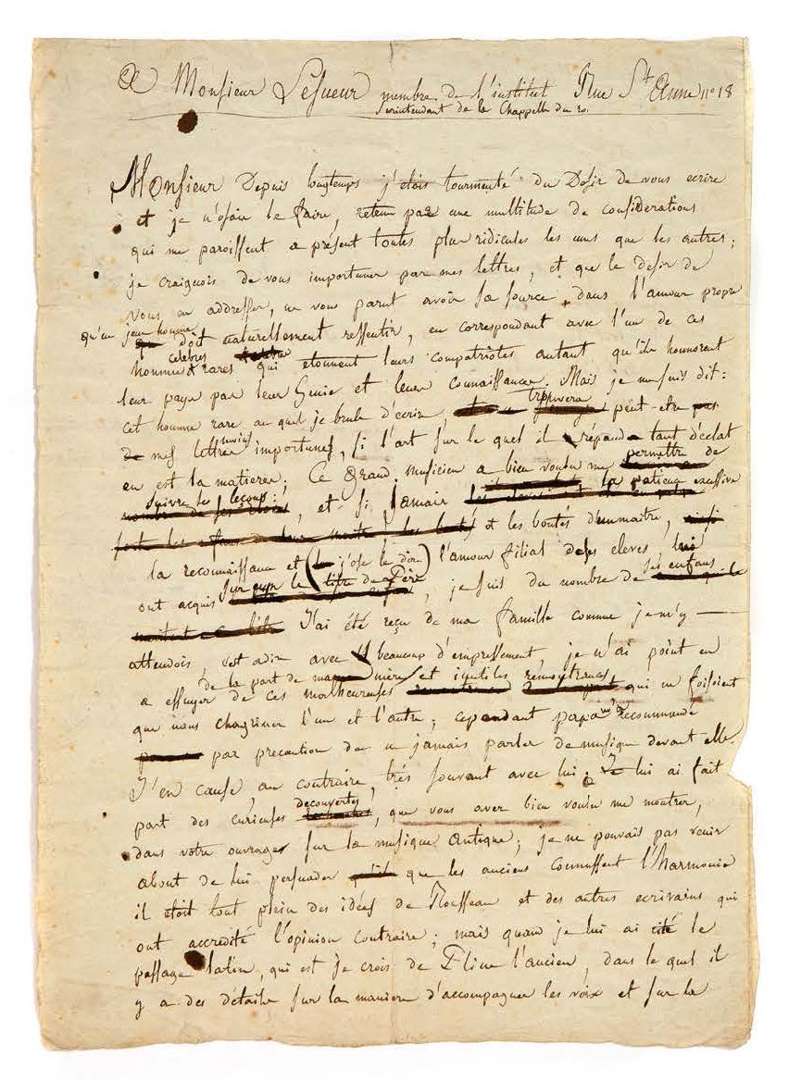 A Monsieur Lesueur membre de l'institut Rue St Anne n° 18
Surintendant de la Chappelle du roi
Monsieur Depuis longtemps j'étois tourmenté du Desir de vous ecrire
et je n'osois le faire, retenu par une multitude de considerations
qui me paroissent a présent toutes plus ridicules les unes que les autres;
je craignois de vous importuner par mes lettres, et que le desir de
vous en addresser, ne vous parut avoir sa source dans l'amour propre
qu'un jeune homme doit naturellement ressentir, en correspondant avec l'un de ces
hommes celebres rares qui etonnent leurs compatriotes autant qu'ils honnorent
leur pays par leur Genie et leurs connaissances. Mais je me suis dit:
cet homme rare au quel je brule d'ecrire trouvera peut-etre
mes lettres moins importunes, si l'art sur le quel il répand tant d'éclat
en est la matiere; Ce Grand musicien a bien voulu me permettre de
suivre ses leçons; et si jamais la patience excessive
et les bontés d'un maitre,
la reconnaissance et (j'ose le dire) l'amour filial de ses eleves, lui
ont acquis sur eux le titre de Père, je suis du nombre de ses enfans
J'ai été reçu de ma famille comme je m'y
attendois, c'est adire avec beaucoup d'empressement, je n'ai point eu
a essuyer de la part de maman de ces malheureuses et inutiles remontrances qui ne faisoient
que nous chagriner l'un et l'autre; cependant papa m'a recommandé
par precaution de ne jamais parler de musique devant elle.
J'en cause, au contraire, très souvent avec lui; Je lui ai fait
part des curieuses decouvertes, que vous avez bien voulu me montrer,
dans votre ouvrage sur la musique antique; je ne pouvais pas venir
about de lui persuader que les anciens connussent l'harmonie
il étoit tout plein des idées de Rousseau et des autres ecrivains qui
ont accredité l'opinion contraire; mais quand je lui ai cité le
passage latin, qui est je crois de Pline l'ancien, dans le quel il
y a des détails sur la maniere d'accompagner les voix et sur la